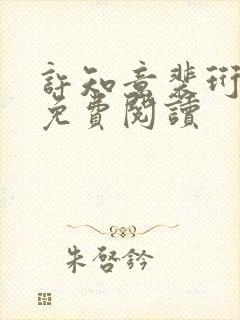 許知意裴珩
免費閱讀
朱啓鈐